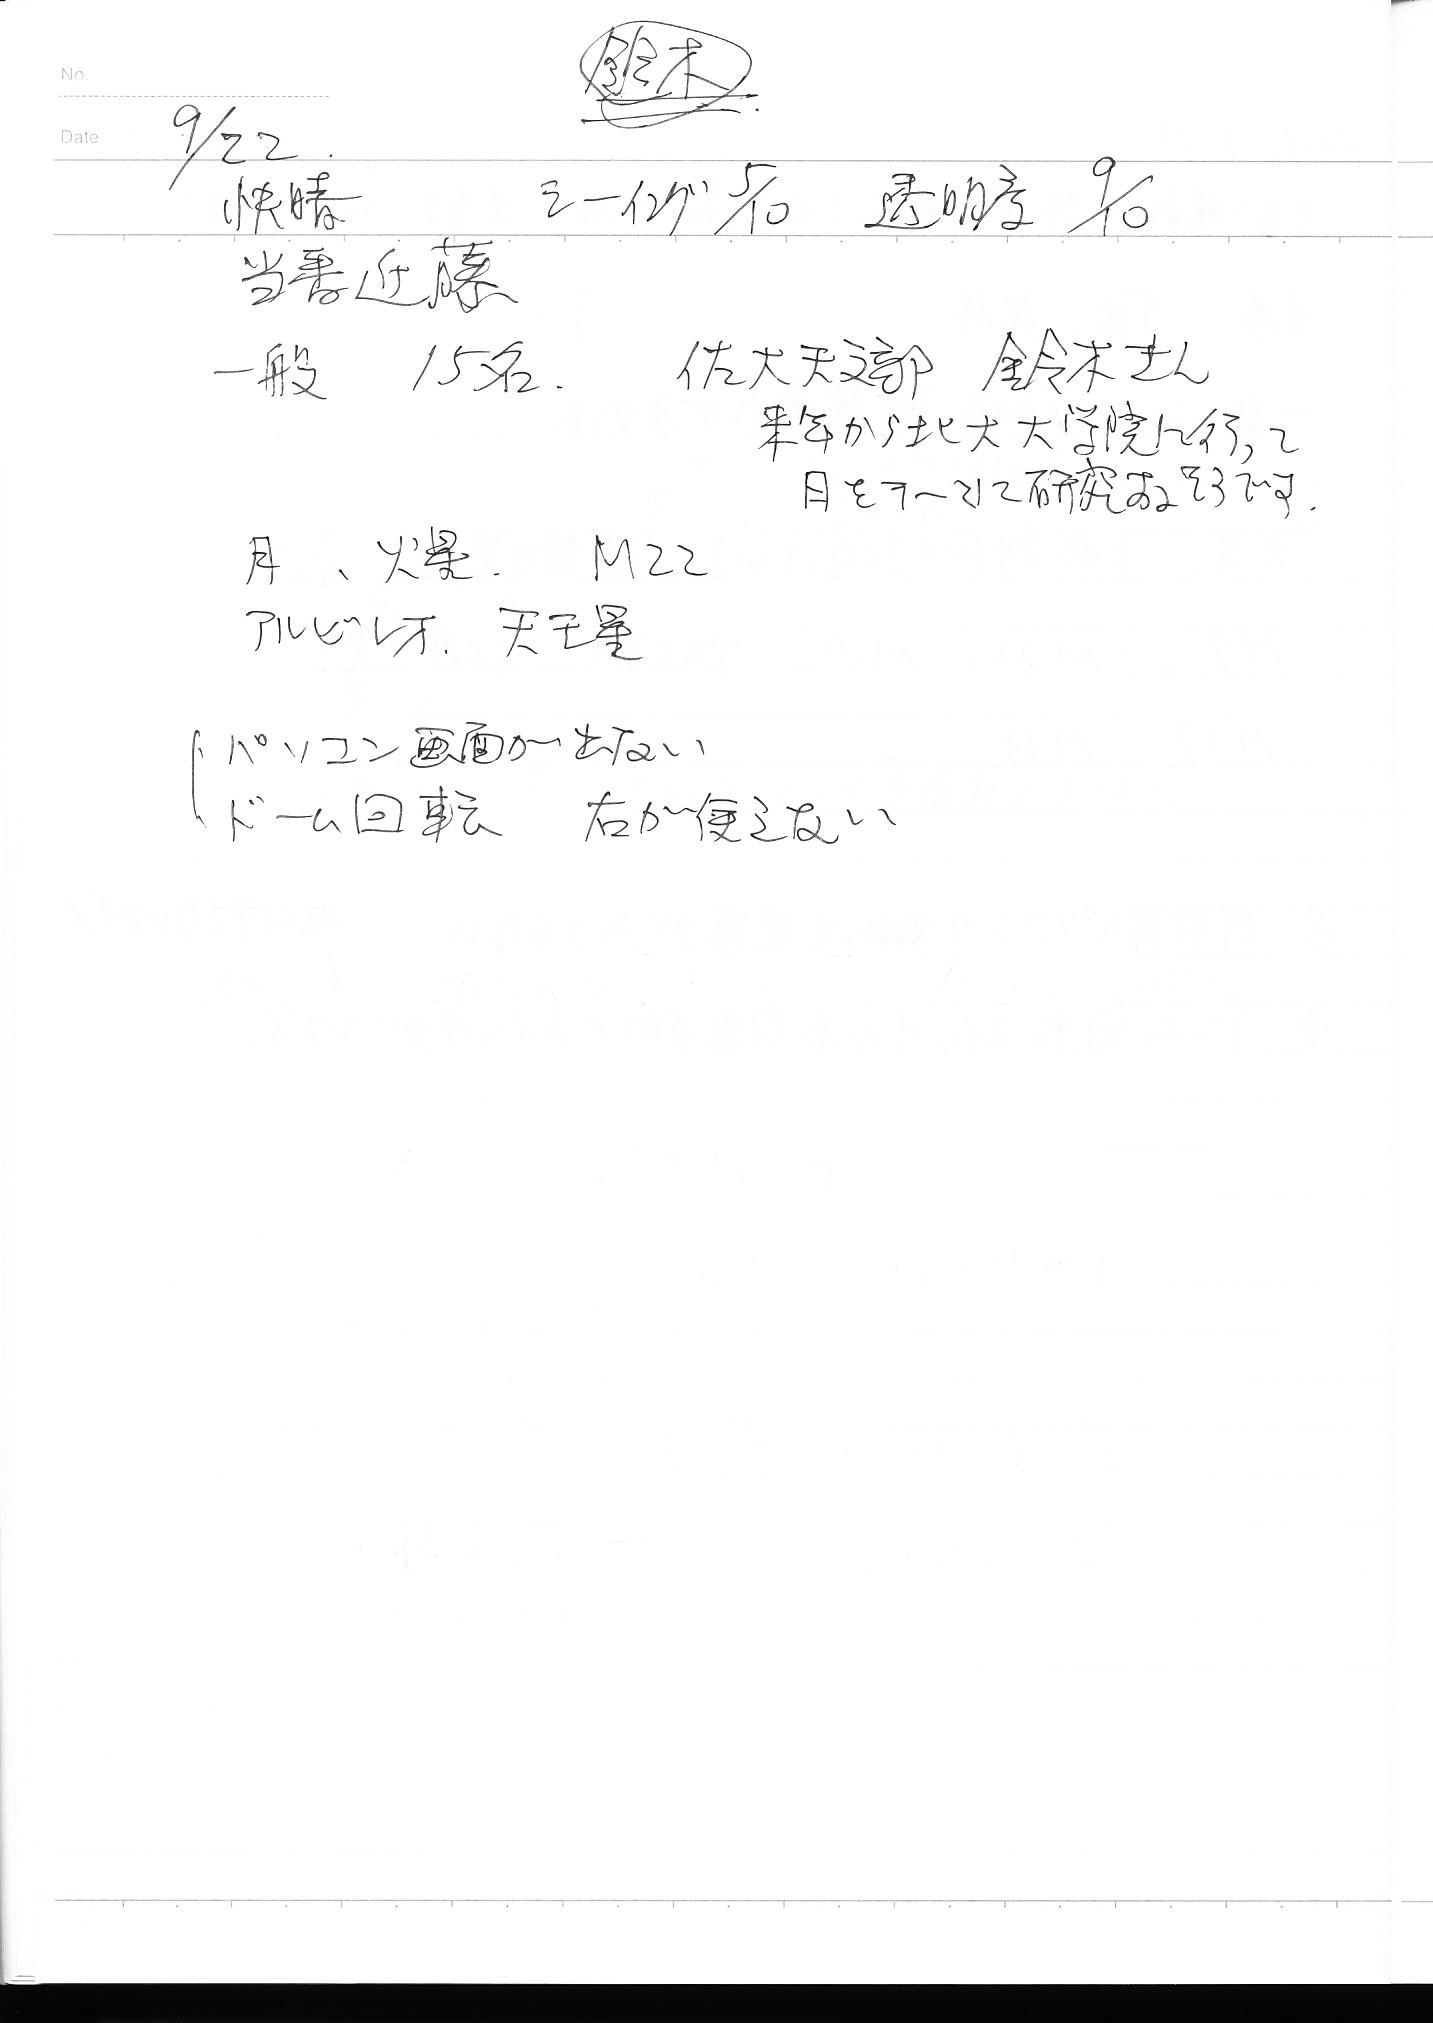 鈴木
No.
Date 9/22.
快晴 シーイング 5/10 透明度 9/10
当番 近藤
一般 15名. 佐大天文部 鈴木さん
来年から北大大学院に行って
月をテーマにて研究するそうです.
月、火星. M22
アルビレオ. 天王星
パソコン画面が出ない
ドーム回転 右が使えない